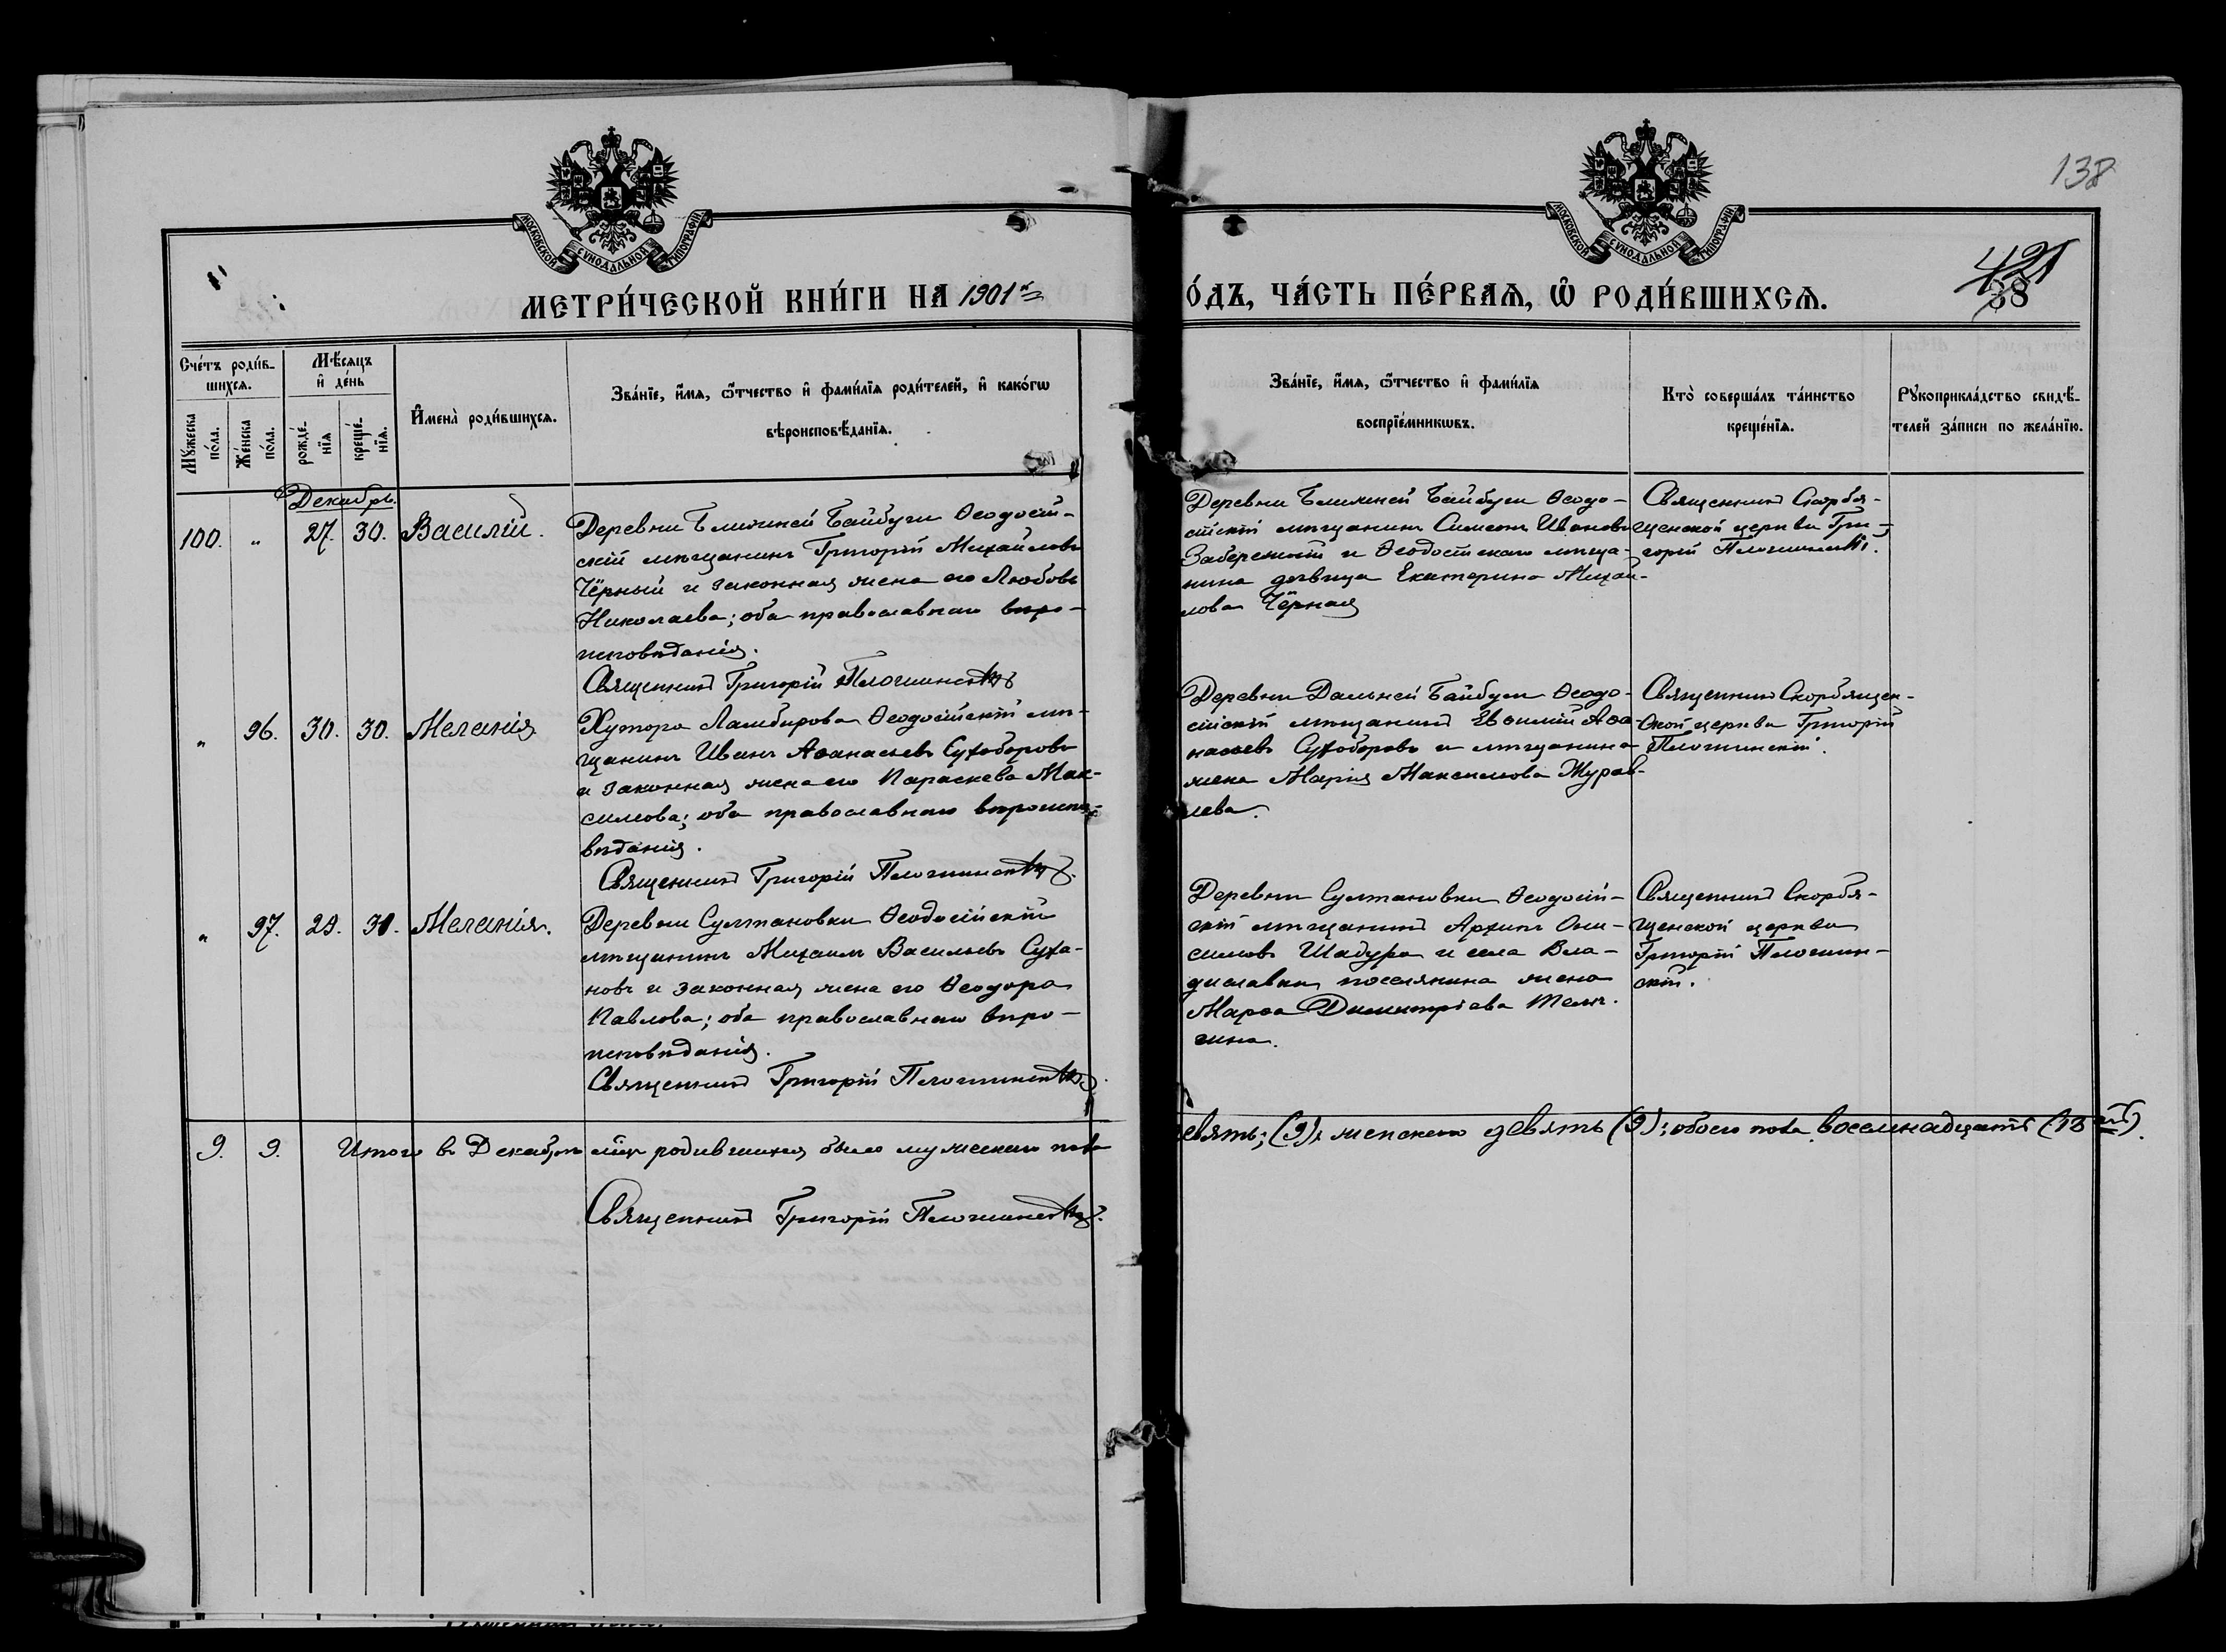 138
МОСКОВСКОЙ СУНОДАЛЬНОЙ ТИПОГРАФІИ
МОСКОВСКОЙ СУНОДАЛЬНОЙ ТИПОГРАФІИ
421
38
МЕТРИ́ЧЕСКОЙ КНИ́ГИ НА 1901й
О́ДЪ, ЧА́СТЬ ПЕ́РВАѦ, Ѡ РОДИ́ВШИХСѦ.
Сче́тъ роди́в-
шихсѧ.
Мѣ́сяцъ
и де́нь
Мꙋ́жеска по́ла.
Же́нска по́ла.
рожде́-
нїѧ
креще́-
нїѧ.
И҆мена̀ роди́вшихсѧ.
Зва́нїе, и҆́мѧ, ѻ҆́тчество и҆ фами́лїѧ роди́телей, и҆ како́гѡ
вѣроисповѣ́данїѧ.
Зва́нїе, и҆́мѧ, ѻ҆́тчество и҆ фами́лїѧ
воспрїе́мникѡвъ.
Кто̀ соверша́лъ та́инство
креще́нїѧ.
Рꙋкоприкла́дство свидѣ́-
телей за́писи по жела́нїю.
Декабрь.
100. " 27. 30. Василій.
Деревни Ближней Байбуги Ѳеодосій-
скій мѣщанинъ Григорій Михайловъ
Чёрный и законная жена его Любовь
Николаева; оба православнаго вѣро-
исповѣданія.
Священникъ Григорій Плошинскій
Деревни Ближней Байбуги Ѳеодо-
сійскій мѣщанинъ Симеонъ Ивановъ
Забережный и Ѳеодосійскаго мѣща-
нина дѣвица Екатерина Михай-
лова Чёрная
Священникъ Скорбя-
щенской церкви Гри-
горій Плошинскій.
" 96. 30. 30. Меланія
Хутора Ламбирова Ѳеодосійскій мѣ-
щанинъ Иванъ Аѳанасьевъ Сухоборовъ
и законная жена его Параскева Мак-
симова; оба православнаго вѣроиспо-
вѣданія.
Священникъ Григорій Плошинскій.
Деревни Дальней Байбуги Ѳеодо-
сійскій мѣщанинъ Евѳимій Аѳа-
насьевъ Сухоборовъ и мѣщанина
жена Марія Максимова Журав-
лева.
Священникъ Скорбящен-
ской церкви Григорій
Плошинскій.
" 97. 29. 30. Меланія.
Деревни Султановки Ѳеодосійскій
мѣщанинъ Михаилъ Васильевъ Суха-
новъ и законная жена его Ѳеодора
Павлова; оба православнаго вѣро-
исповѣданія.
Священникъ Григорій Плошинскій.
Деревни Султановки Ѳеодосій-
скій мѣщанинъ Архипъ Они-
симовъ Шадура и села Вла-
диславки поселянина жена
Марѳа Димитріева
Священникъ Скорбя-
щенской церкви
Григорій Плошин-
скій.
9. 9. Итого въ Декабрѣ мѣс. родившихся было мужескаго пола
евять; (9); женскаго девять (9); обоего пола восемнадцать (18).
Священникъ Григорій Плошинскій.